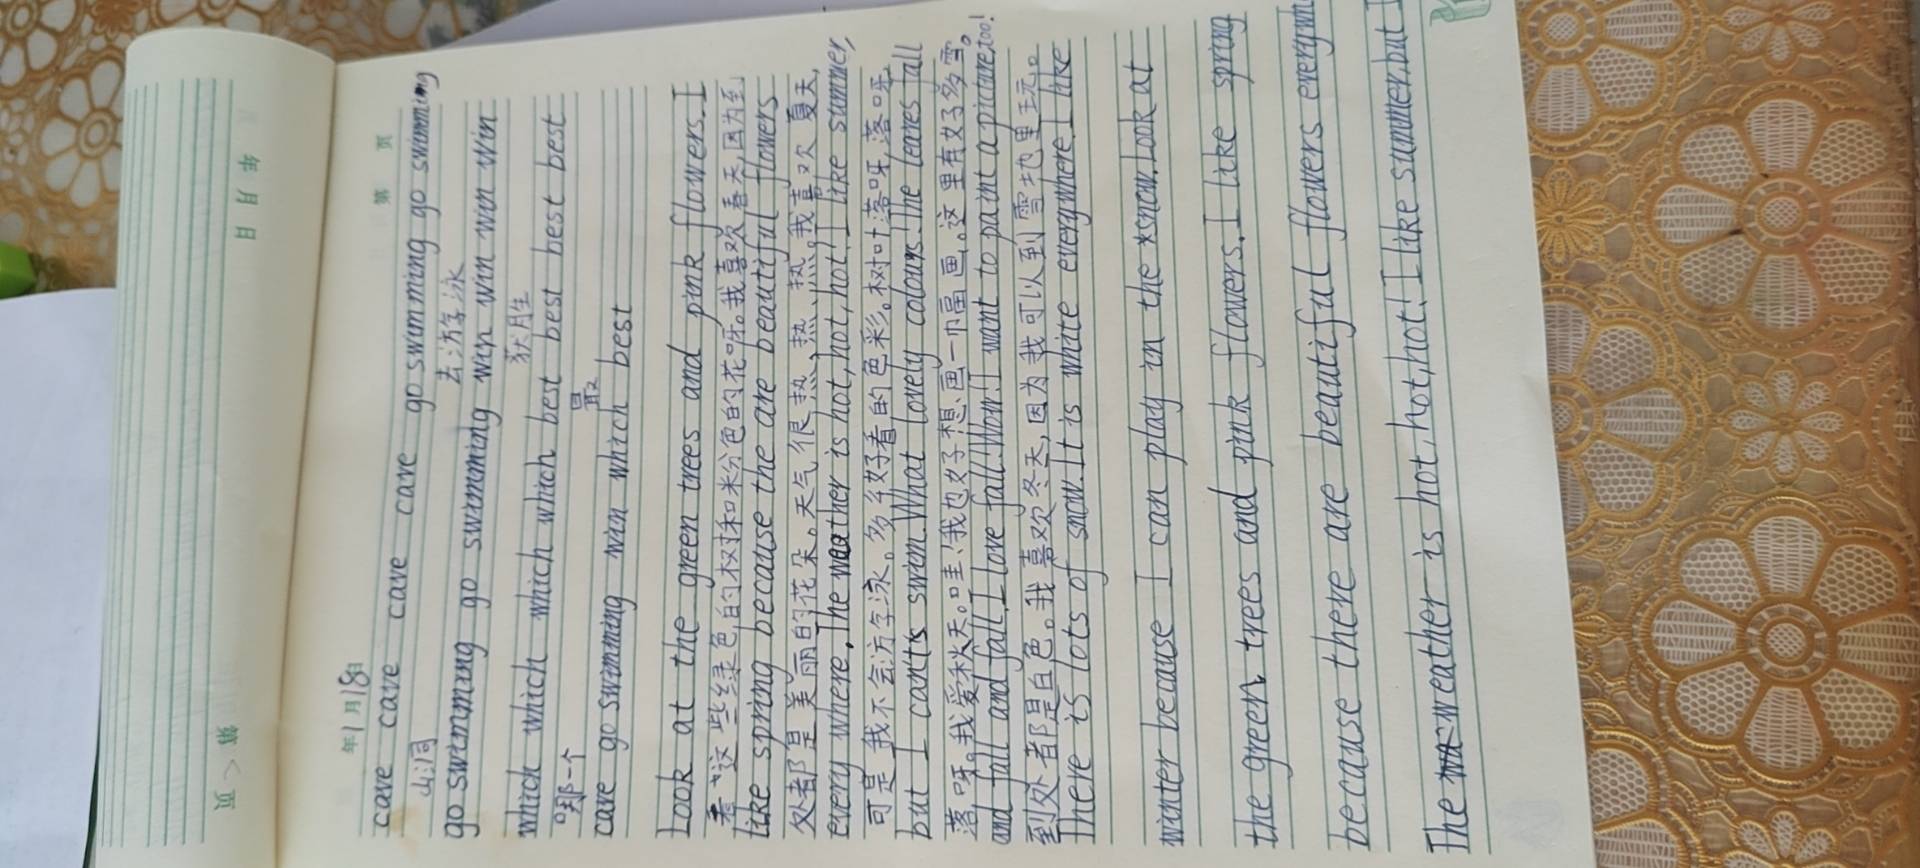 年 月 日
第 页
年1月18日
第 页
cave cave cave cave cave go swimming go swimming
山洞 去游泳
go swimming go swimming win win win win win
获胜
which which which which best best best best best
哪一个 最
cave go swimming win which best
Look at the green trees and pink flowers. I
看这些绿色的树和粉色的花呀。我喜欢春天,因为到
like spring because the are beautiful flowers
处都是美丽的花朵。天气很热、热、热。我喜欢夏天,
every where. The weather is hot, hot, hot! I like summer,
可是我不会游泳。多么好看的色彩。树叶落呀,落呀,
but I can't swim. What lovely colours! The leaves fall
落呀。我爱秋天。哇!我也好想画一幅画。这里有好多雪。
and fall and fall. I love fall! Wow! I want to paint a picture, too!
到处都是白色。我喜欢冬天,因为我可以到雪地里玩。
There is lots of snow. It is white everywhere. I like
winter because I can play in the snow. Look at
the green trees and pink flowers. I like spring
because there are beautiful flowers
The weather is hot, hot, hot! I like summer, but I